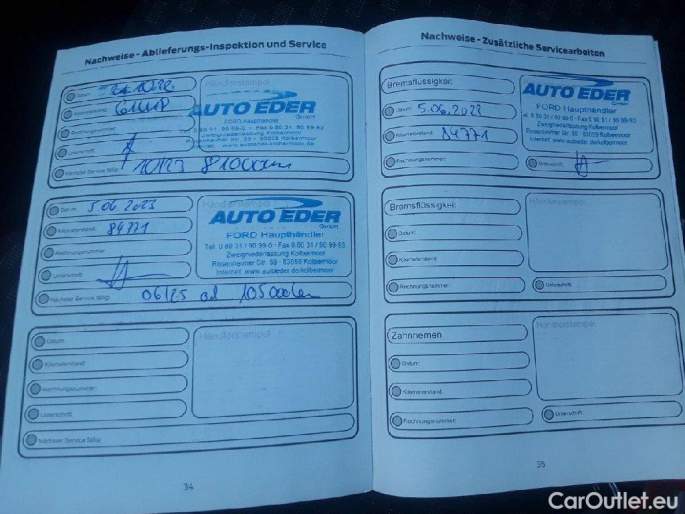 Nachweise - Ablieferungs-Inspektion und Service
Datum
Händlerstempel
AUTO EDER
GmbH
FORD Haupthändler
Zweigniederlassung Kolbermoor
Kilometerstand
Rechnungsnummer
Unterschrift
Nächster Service fällig
10/23 81000km
Datum 5.06.2023
Kilometerstand 84771
Rechnungsnummer
Unterschrift
Händlerstempel
AUTO EDER
GmbH
FORD Haupthändler
Tel. 0 80 31 / 90 99-0 - Fax 0 80 31 / 90 99-93
Zweigniederlassung Kolbermoor
Rosenheimer Str. 59 - 83059 Kolbermoor
Internet: www.autoeder.de/kolbermoor
Nächster Service fällig 06/25 od 105000km
Datum
Händlerstempel
Kilometerstand
Rechnungsnummer
Unterschrift
Nächster Service fällig
34
Nachweise - Zusätzliche Servicearbeiten
Bremsflüssigkeit
Datum
Kilometerstand 84771
Rechnungsnummer
AUTO EDER
FORD Haupthändler
Zweigniederlassung Kolbermoor
Unterschrift
Bremsflüssigkeit
Händlerstempel
Datum
Kilometerstand
Rechnungsnummer
Unterschrift
Zahnriemen
Händlerstempel
Datum
Kilometerstand
Rechnungsnummer
Unterschrift
35
CarOutlet.eu